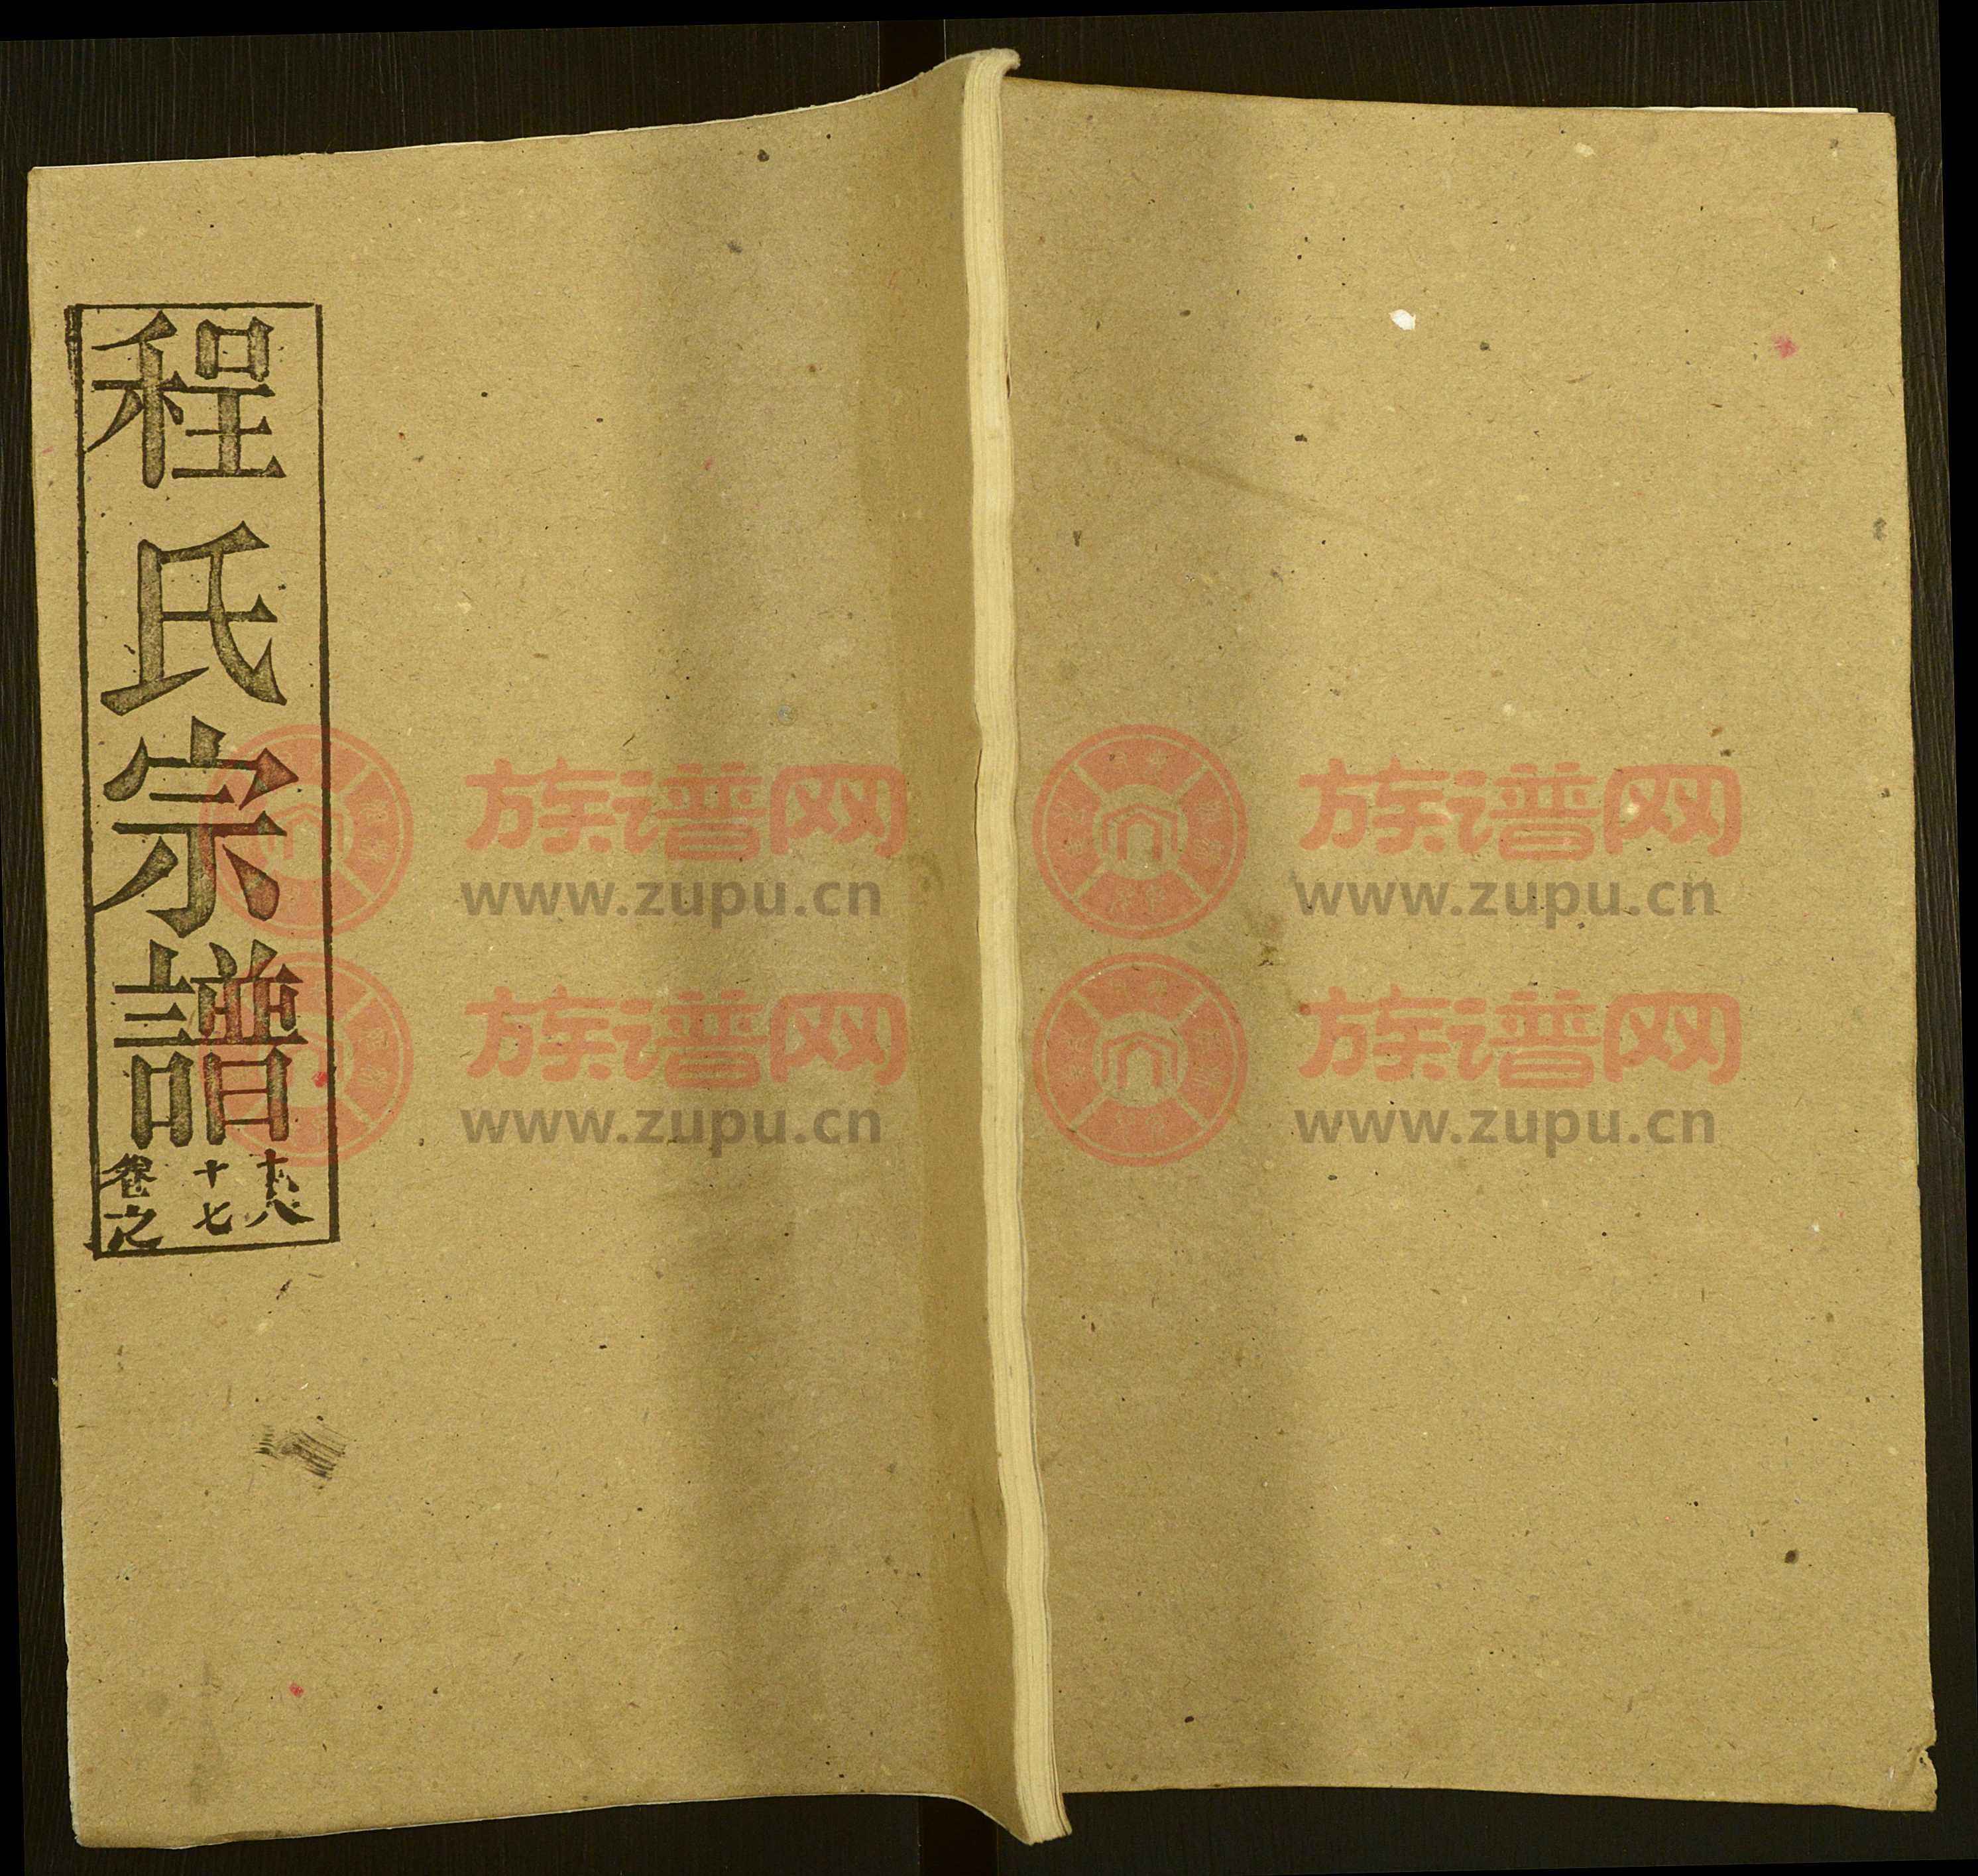 程氏宗譜
十八
十七
卷之
族谱网 族谱网
www.zupu.cn www.zupu.cn
族谱网 族谱网
www.zupu.cn www.zupu.cn